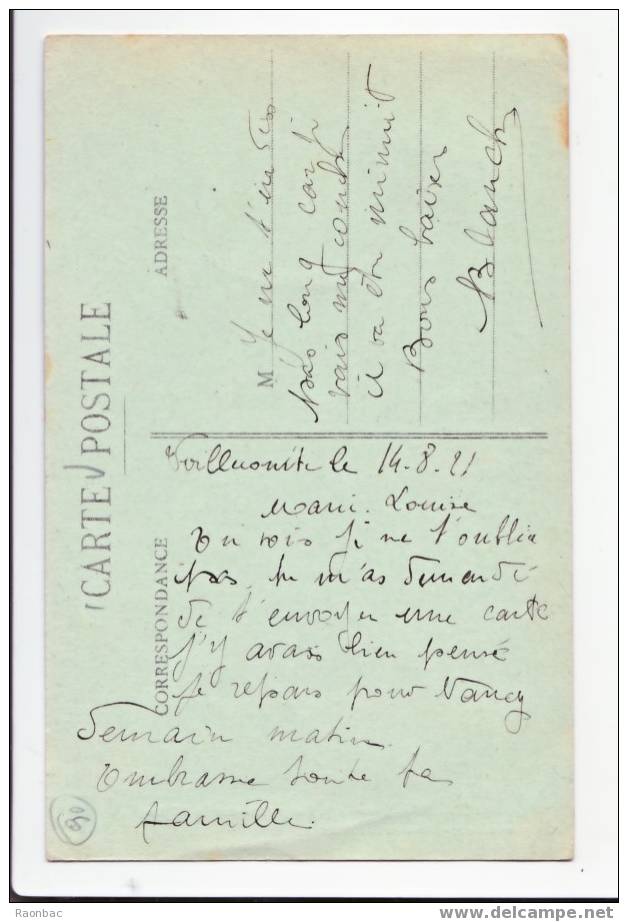 CARTE POSTALE
CORRESPONDANCE
ADRESSE
le 14-8-21
Marie-Louise
Tu vois je ne t'oublie
pas, tu m'as demandé
de t'envoyer une carte
j'y avais bien pensé
Je repars pour Nancy
demain matin
Embrasse toute ta
famille.
M
Je ne t'en dis
pas long car je
vais me coucher
il va être minuit
Bons baisers
Blanche
90
Raonbac
www.delcampe.net